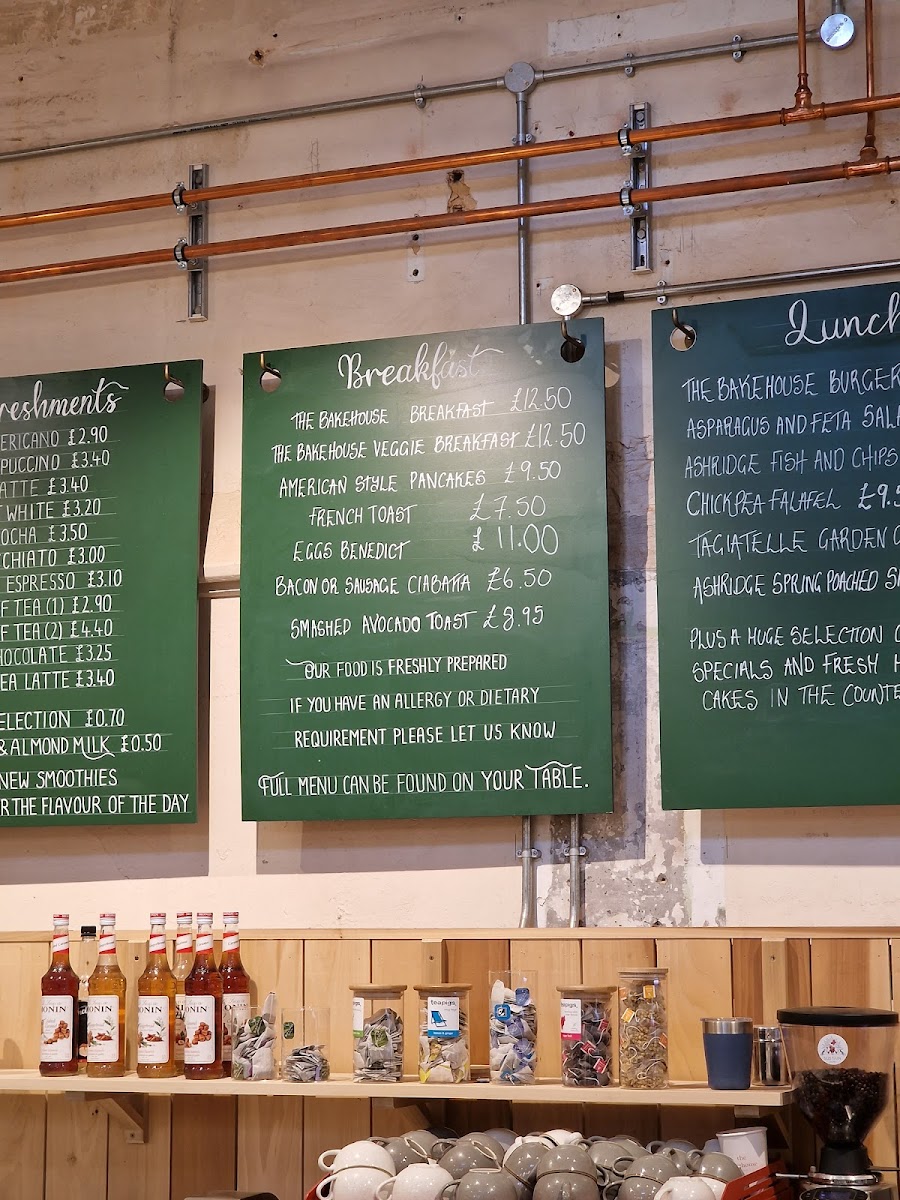 reshments
ERICANO £2.90
PUCCINO £3.40
ATTE £3.40
T WHITE £3.20
OCHA £3.50
CCHIATO £3.00
ESPRESSO £3.10
F TEA (1) £2.90
F TEA (2) £4.40
HOCOLATE £3.25
EA LATTE £3.40
ELECTION £0.70
& ALMOND MILK £0.50
NEW SMOOTHIES
R THE FLAVOUR OF THE DAY
Breakfast
THE BAKEHOUSE BREAKFAST £12.50
THE BAKEHOUSE VEGGIE BREAKFAST £12.50
AMERICAN STYLE PANCAKES £9.50
FRENCH TOAST £7.50
EGGS BENEDICT £11.00
BACON OR SAUSAGE CIABATTA £6.50
SMASHED AVOCADO TOAST £8.95
OUR FOOD IS FRESHLY PREPARED
IF YOU HAVE AN ALLERGY OR DIETARY
REQUIREMENT PLEASE LET US KNOW
FULL MENU CAN BE FOUND ON YOUR TABLE.
Lunch
THE BAKEHOUSE BURGER
ASPARAGUS AND FETA SALA
ASHRIDGE FISH AND CHIPS
CHICKPEA FALAFEL £9.5
TAGIATELLE GARDEN
ASHRIDGE SPRING POACHED
PLUS A HUGE SELECTION
SPECIALS AND FRESH H
CAKES IN THE COUNTE
ONIN
ONIN
ONIN
MONIN
teapigs
teapigs